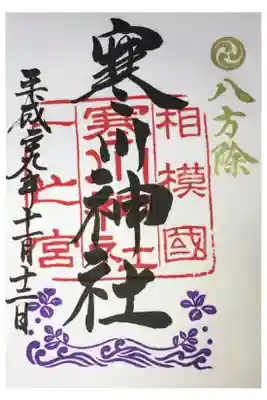 八方除
相模國
寒川神社
寒川神社
一之宮
平成二九年十一月十二日